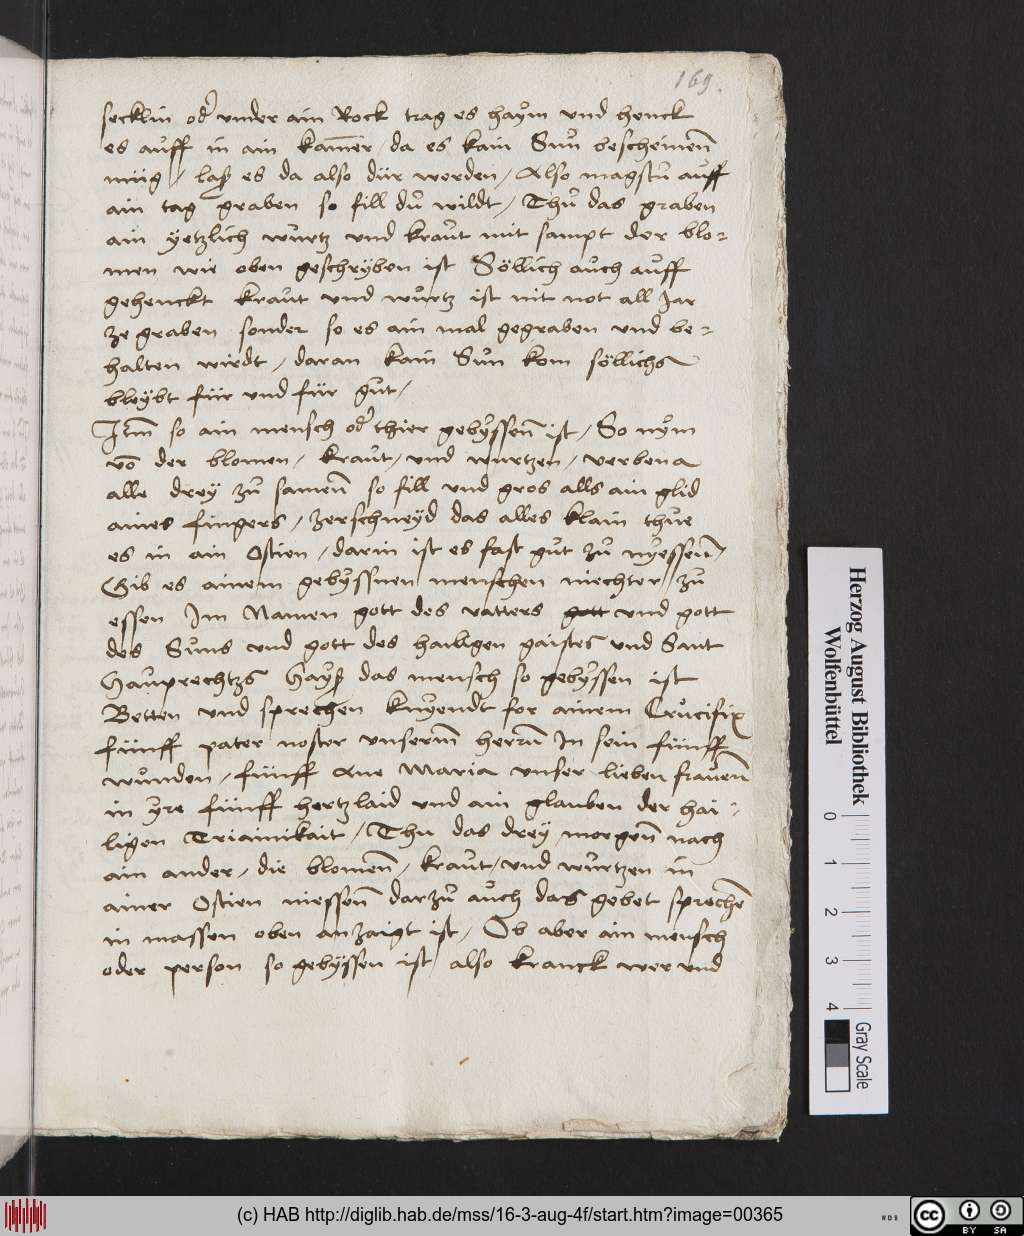 169.
secklin od͛ vnder ain Rock trag es haÿm vnd henck
es auff in ain kam̅er / da es kain Sun̊ bescheinen̅
müg / laß es da also dür werden / Also magstu auff
ain tag graben so fill du̇ wildt / Thu̇ das graben
ain yetzlich wurtz vnd kraut mit sampt der blo-
men wie oben geschryben ist Söllich auch auff
gehenckt kraut vnd wurtz ist nit not all Jar
ze graben sonder so es ain mal gegraben vnd be-
halten wirdt / daran kain Sun kom söllichs
bleÿbt für vnd für gut /
Itm̅ so ain mensch od͛ thier gebÿssen̅ ist / So nÿm
vo̅ der blomen / kraut / vnd wurtzen / verbena
alle dreÿ zu̇ samen̅ so fill vnd gros alls ain glid
aines fingers / zerschneÿd das alles klain thue
es in ain Ostien / darin ist es fast gut zu̇ nÿessen̅ /
Gib es ainem gebÿssnen menschen niechter zu̇
essen Im Namen gott des vatters gott vnd gott
des Suns vnd gott des hailigen gaistes vnd Sant
Hauprechtzs Hayß das mensch so gebÿssen ist
Betten vnd sprechen knÿendt for ainem Crucifix
fünff pater noster vnserm̅ herrn̅ In sein fünff
wunden / fünff Aue Maria vnser lieben frauen̅
in ÿre fünff hertzlaid vnd ain glauben der hai-
ligen Triainikait / Thu das dreÿ morgen̅ nach
ain ander / die blomen̅ / kraut / vnd wurtzen in
ainer Ostien niessen̅ darzu̇ auch das gebet spreche̅
in massen oben anzaigt ist / Ob aber ain mensch
oder person so gebÿssen ist / also kranck wer vnd
Herzog August Bibliothek
Wolfenbüttel
0 1 2 3 4
Gray Scale
(c) HAB http://diglib.hab.de/mss/16-3-aug-4f/start.htm?image=00365
WDB
cc BY SA